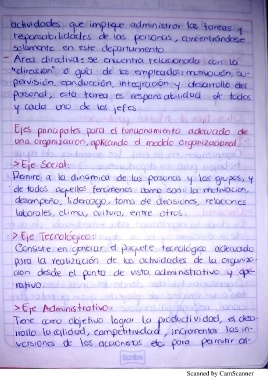 actividades que implique administrar las tareas y
responsabilidades de las personas, concentrándose
solamente en este departamento.
- Area directiva: se encuentra relacionado con la
"dirección" o guía de los empleados: motivación, su-
pervisión, conducción, integración y desarrollo del
personal, esta tarea es responsabilidad de todos
y cada uno de los jefes.
Ejes principales para el funcionamiento adecuado de
una organización, aplicando el modelo organizacional.
> Eje Social:
Remite a la dinámica de las personas y los grupos, y
de todos aquellos fenómenos como son: la motivación,
desempeño, liderazgo, toma de decisiones, relaciones
laborales, clima, cultura, entre otros.
> Eje Tecnológico:
Consiste en generar el paquete tecnológico adecuado
para la realización de las actividades de la organiza-
ción desde el punto de vista administrativo y ope-
rativo.
> Eje Administrativo:
Tiene como objetivo lograr la productividad, el desa-
rrollo la calidad, competitividad, incrementar las in-
versiones de los accionistas etc para permitir al-
Scribe
Scanned by CamScanner